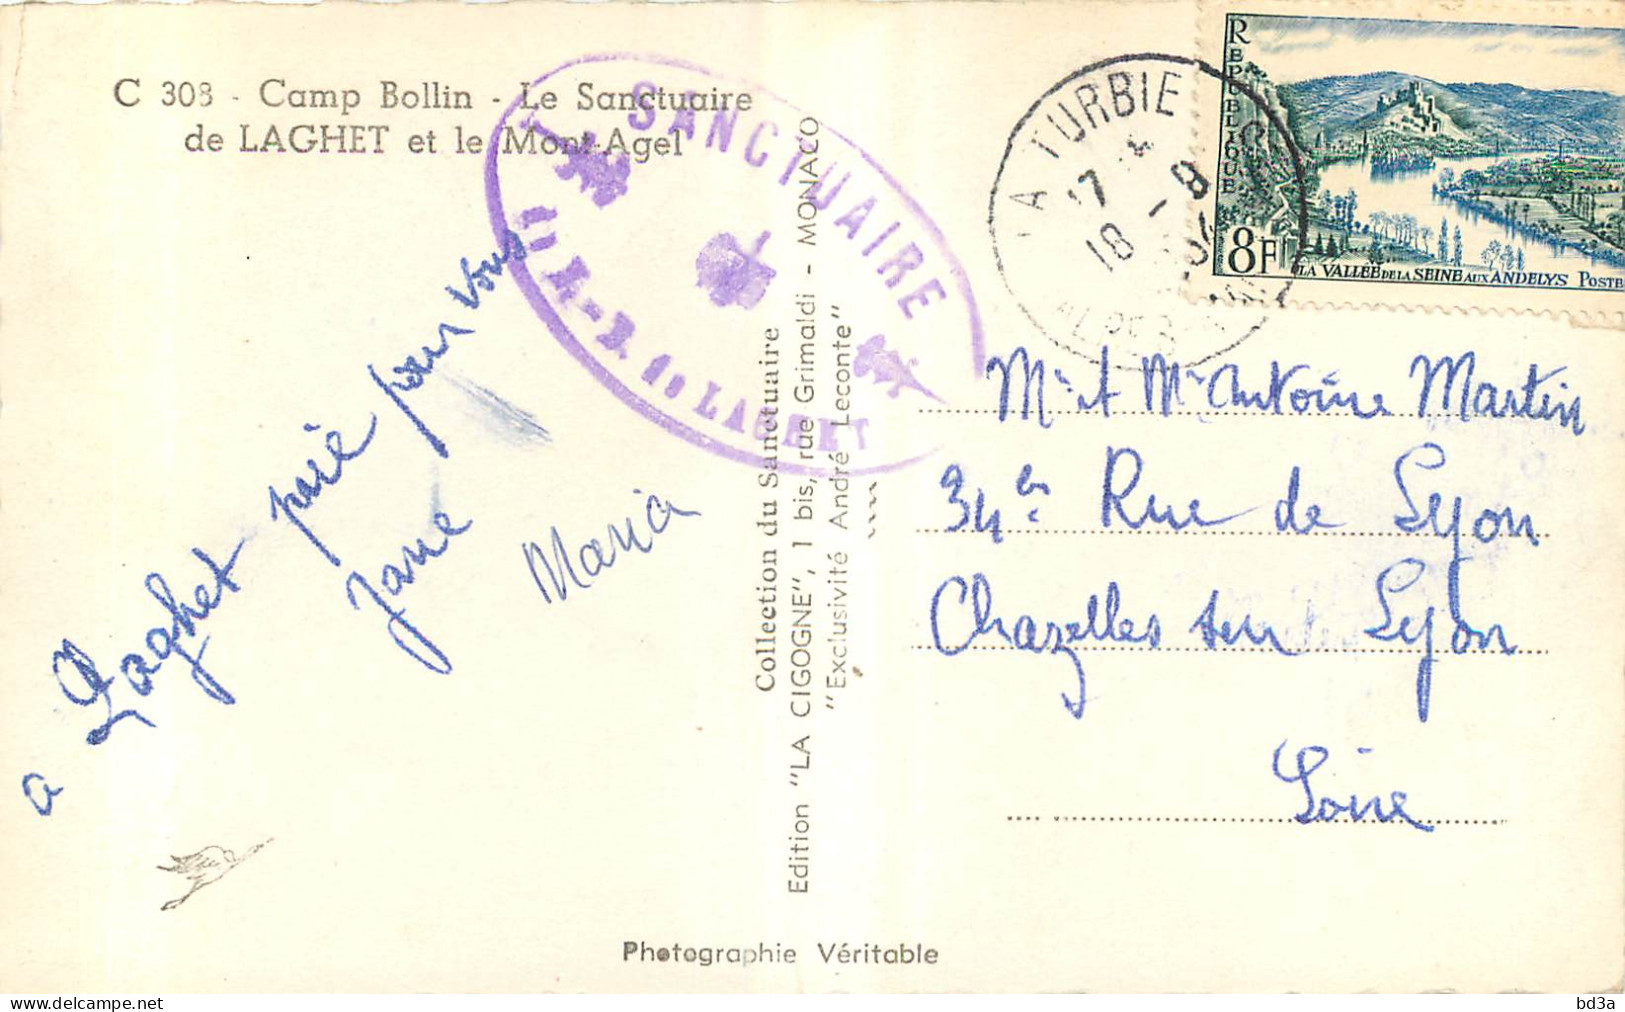 C 308 - Camp Bollin - Le Sanctuaire
de LAGHET et le Mont-Agel
SANCTUAIRE
N.-D. de LAGHET
LA TURBIE
17
18 - 9
ALPES-
REPUBLIQUE
8F
LA VALLÉE DE LA SEINE AUX ANDELYS POSTE
a Laghet prié pour vous
Jane
Maria
Collection du Sanctuaire
Edition "LA CIGOGNE", 1 bis, rue Grimaldi - MONACO
"Exclusivité André Leconte"
Mr et Me Antoine Martin
34 Rue de Lyon
Chazelles sur Lyon
Loire
Photographie Véritable
delcampe.net
bd3a